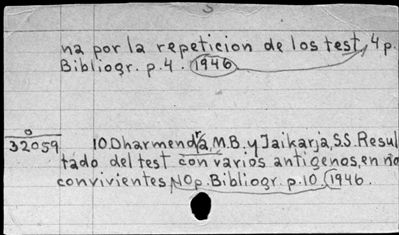 na por la repeticion de los test, 4 p.
Bibliogr. p. 4. 1946
32059 10. Dharmendra, M.B. y Jaikarja, S.S. Resul
tado del test con varios antigenos, en no
convivientes, 10 p. Bibliogr. p. 10. 1946.